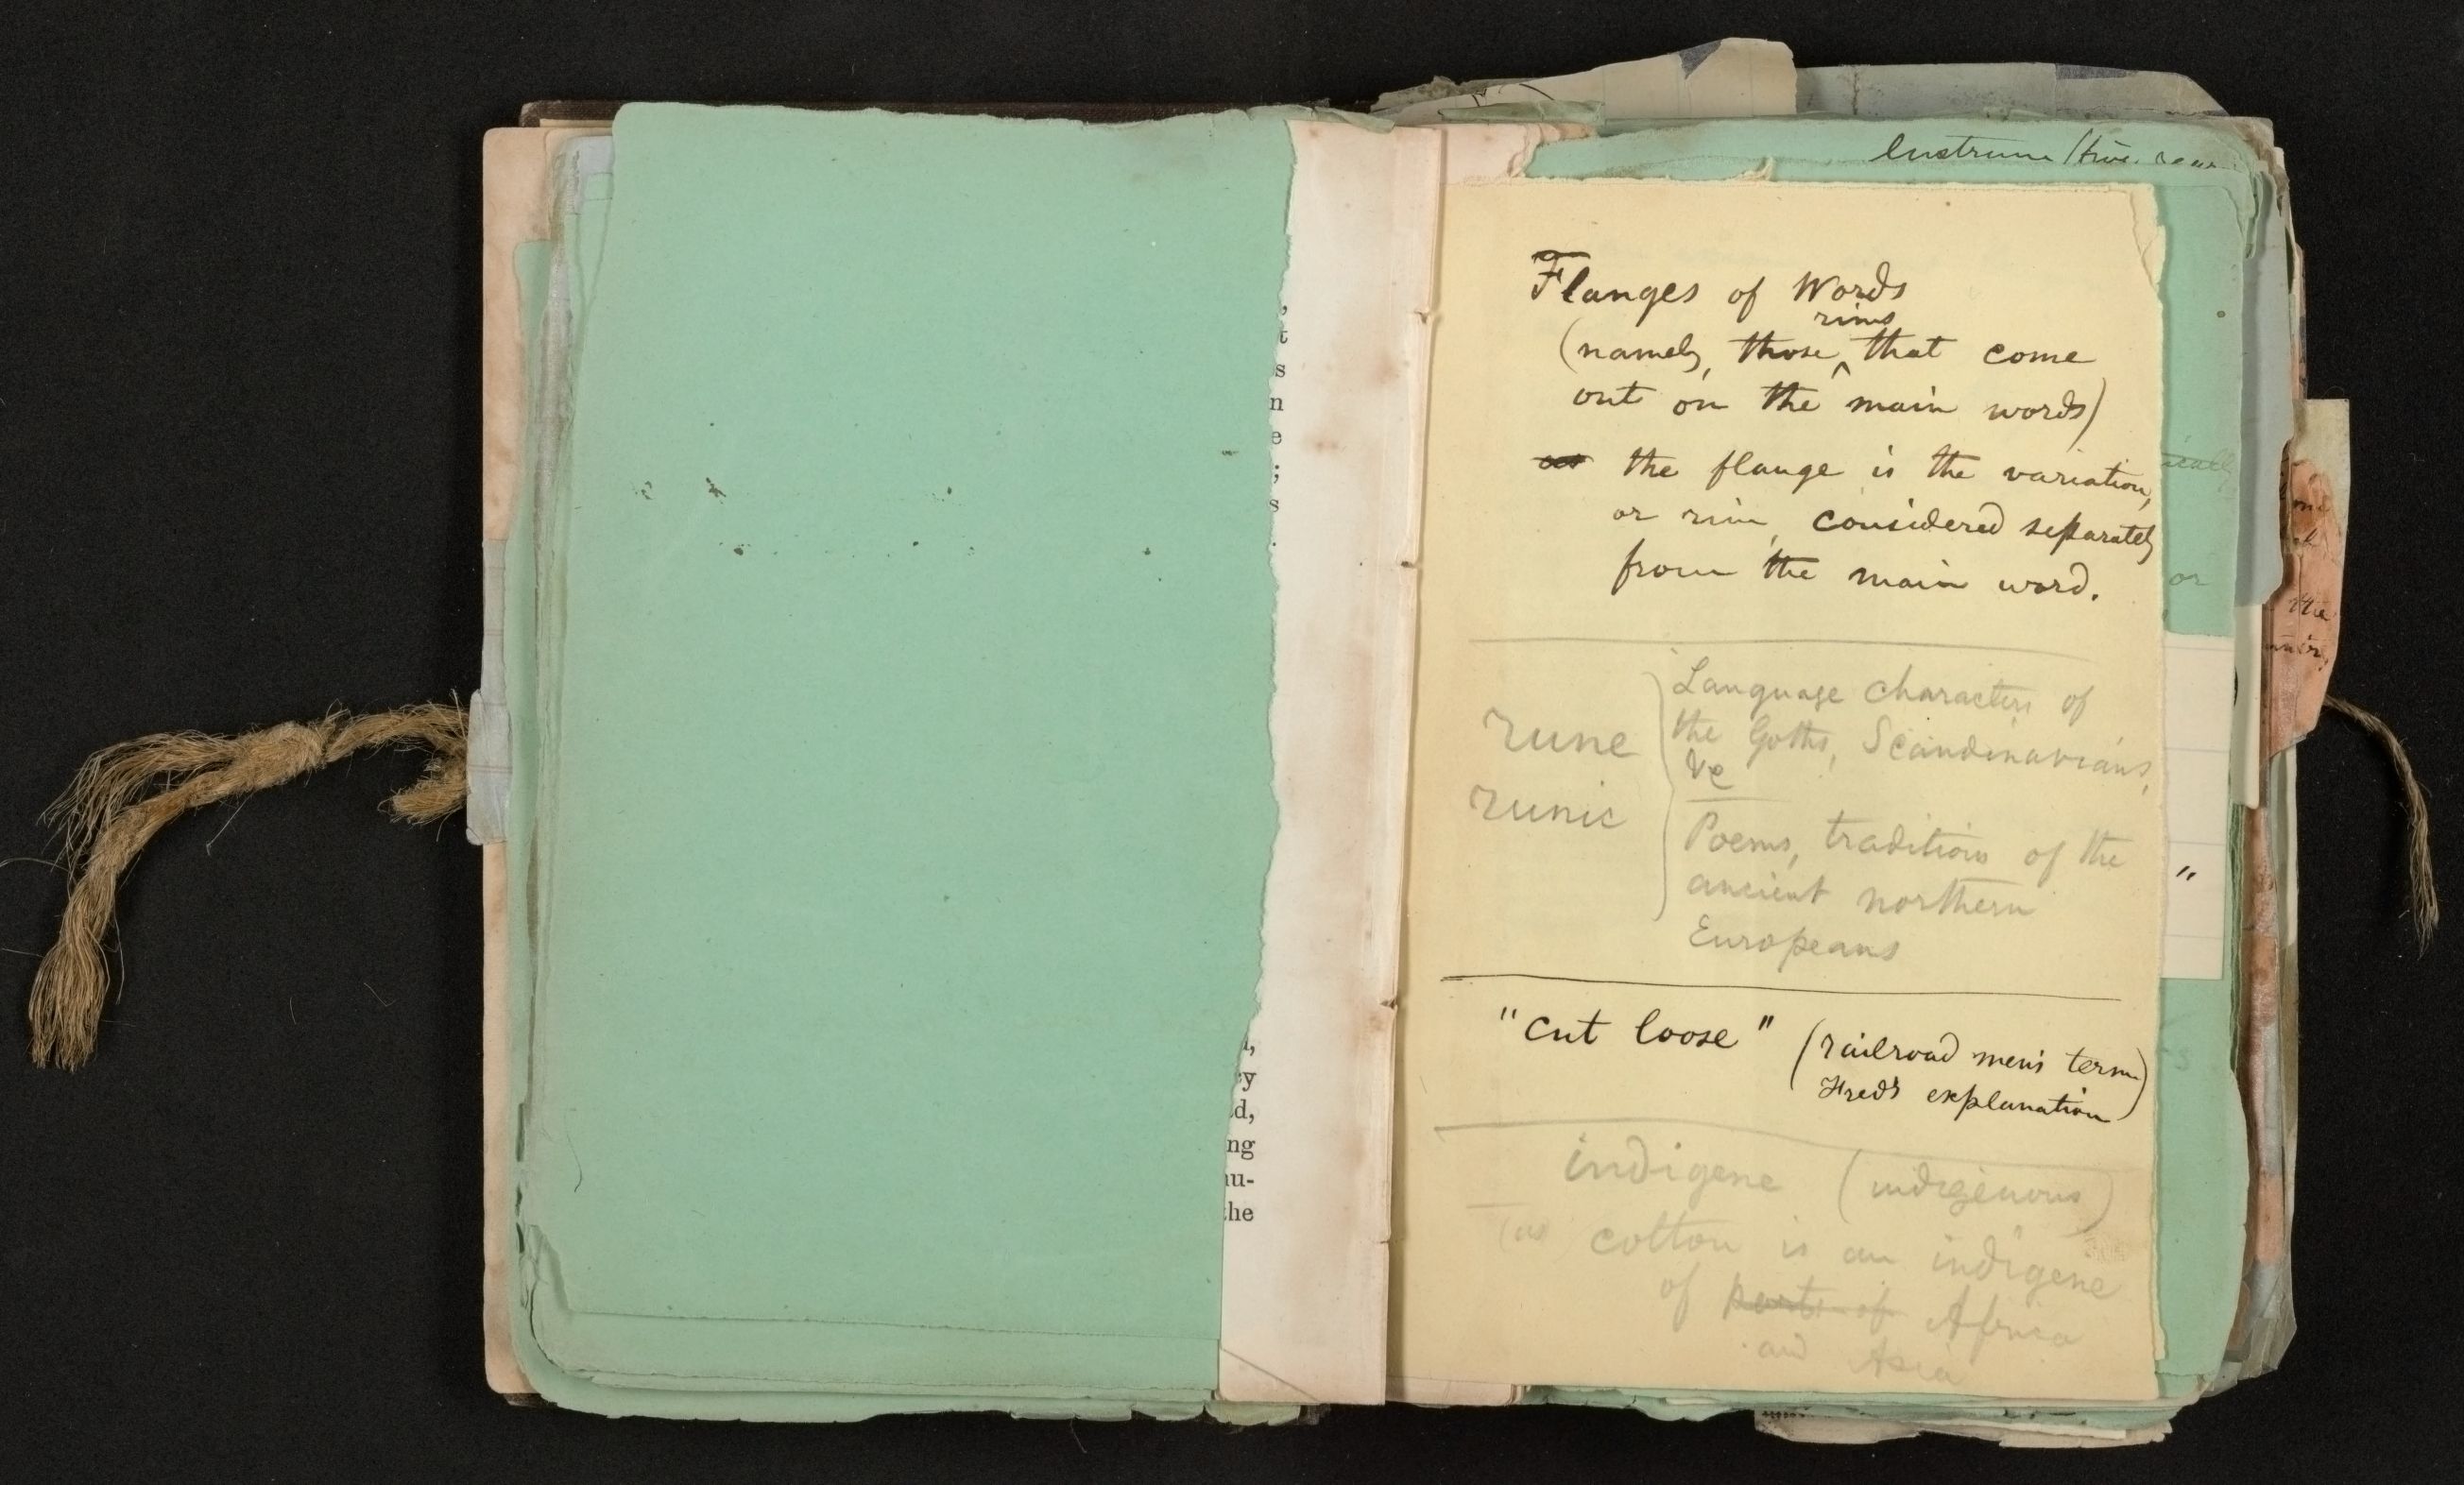 ,
t
s
n
e
;
s
.
,
y
d,
ng
u-
the
lustrum
Flanges of Words
rims
(namely, those ^ that come
out on the main words)
the flange is the variation,
or rim, considered separately
from the main word.
rune
runic
Language characters of
the Goths, Scandinavians,
&c
Poems, traditions of the
ancient northern
Europeans
"cut loose" (railroad men's term
Fred's explanation)
indigene (indigenous)
(as cotton is an indigene
of parts of Africa
and Asia
or
the
"